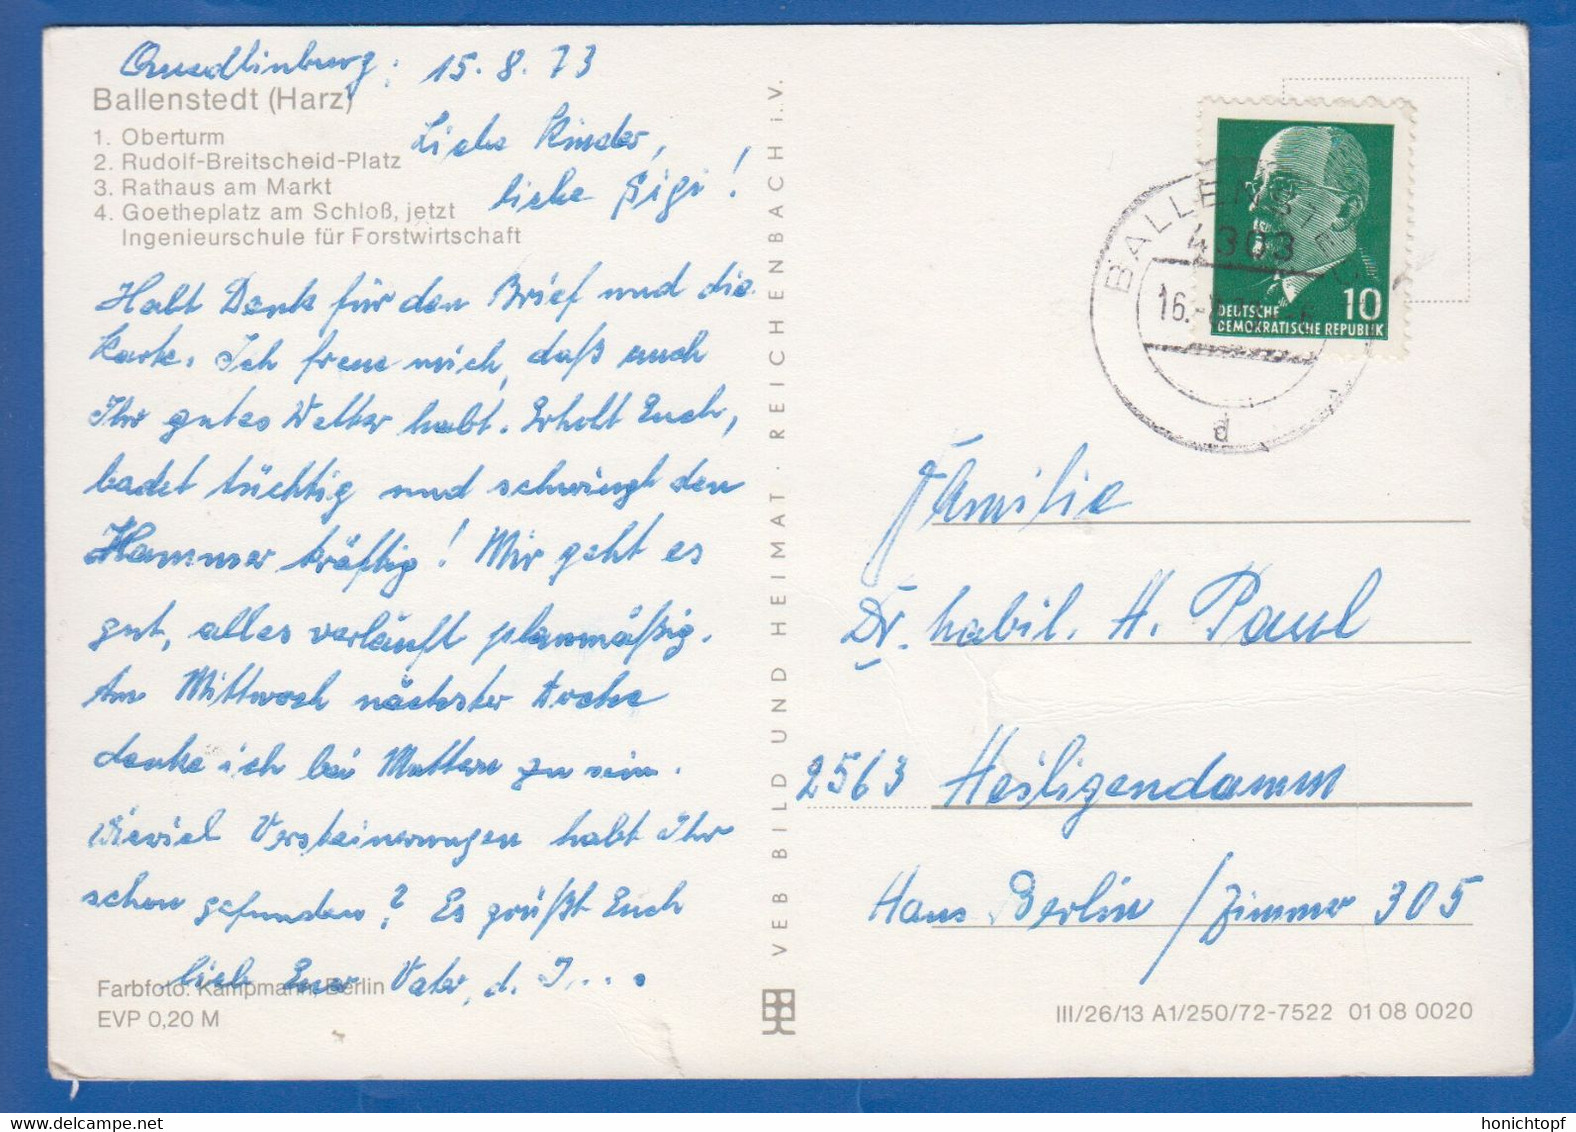 Quedlinburg, 15.8.73
Ballenstedt (Harz)
1. Oberturm
2. Rudolf-Breitscheid-Platz
3. Rathaus am Markt
4. Goetheplatz am Schloß, jetzt
Ingenieurschule für Forstwirtschaft
Liebe Kinder,
liebe Gigi!
Habt Dank für den Brief und die
Karte. Ich freue mich, daß auch
Ihr gutes Wetter habt. Erholt Euch,
badet tüchtig und schwingt den
Hammer kräftig! Mir geht es
gut, alles verläuft planmäßig.
Am Mittwoch nächster Woche
denke ich bei Muttern zu sein.
Wieviel Versteinerungen habt Ihr
schon gefunden? Es grüßt Euch
lieb Euer Vater, d. I....
Farbfoto: Kampmann, Berlin
EVP 0,20 M
VEB BILD UND HEIMAT · REICHENBACH i. V.
BALLENSTEDT
4303
16.
d
10
DEUTSCHE
DEMOKRATISCHE REPUBLIK
Familie
Dr. habil. H. Paul
2563 Heiligendamm
Haus Berlin / Zimmer 305
III/26/13 A1/250/72-7522 01 08 0020
honichtopf